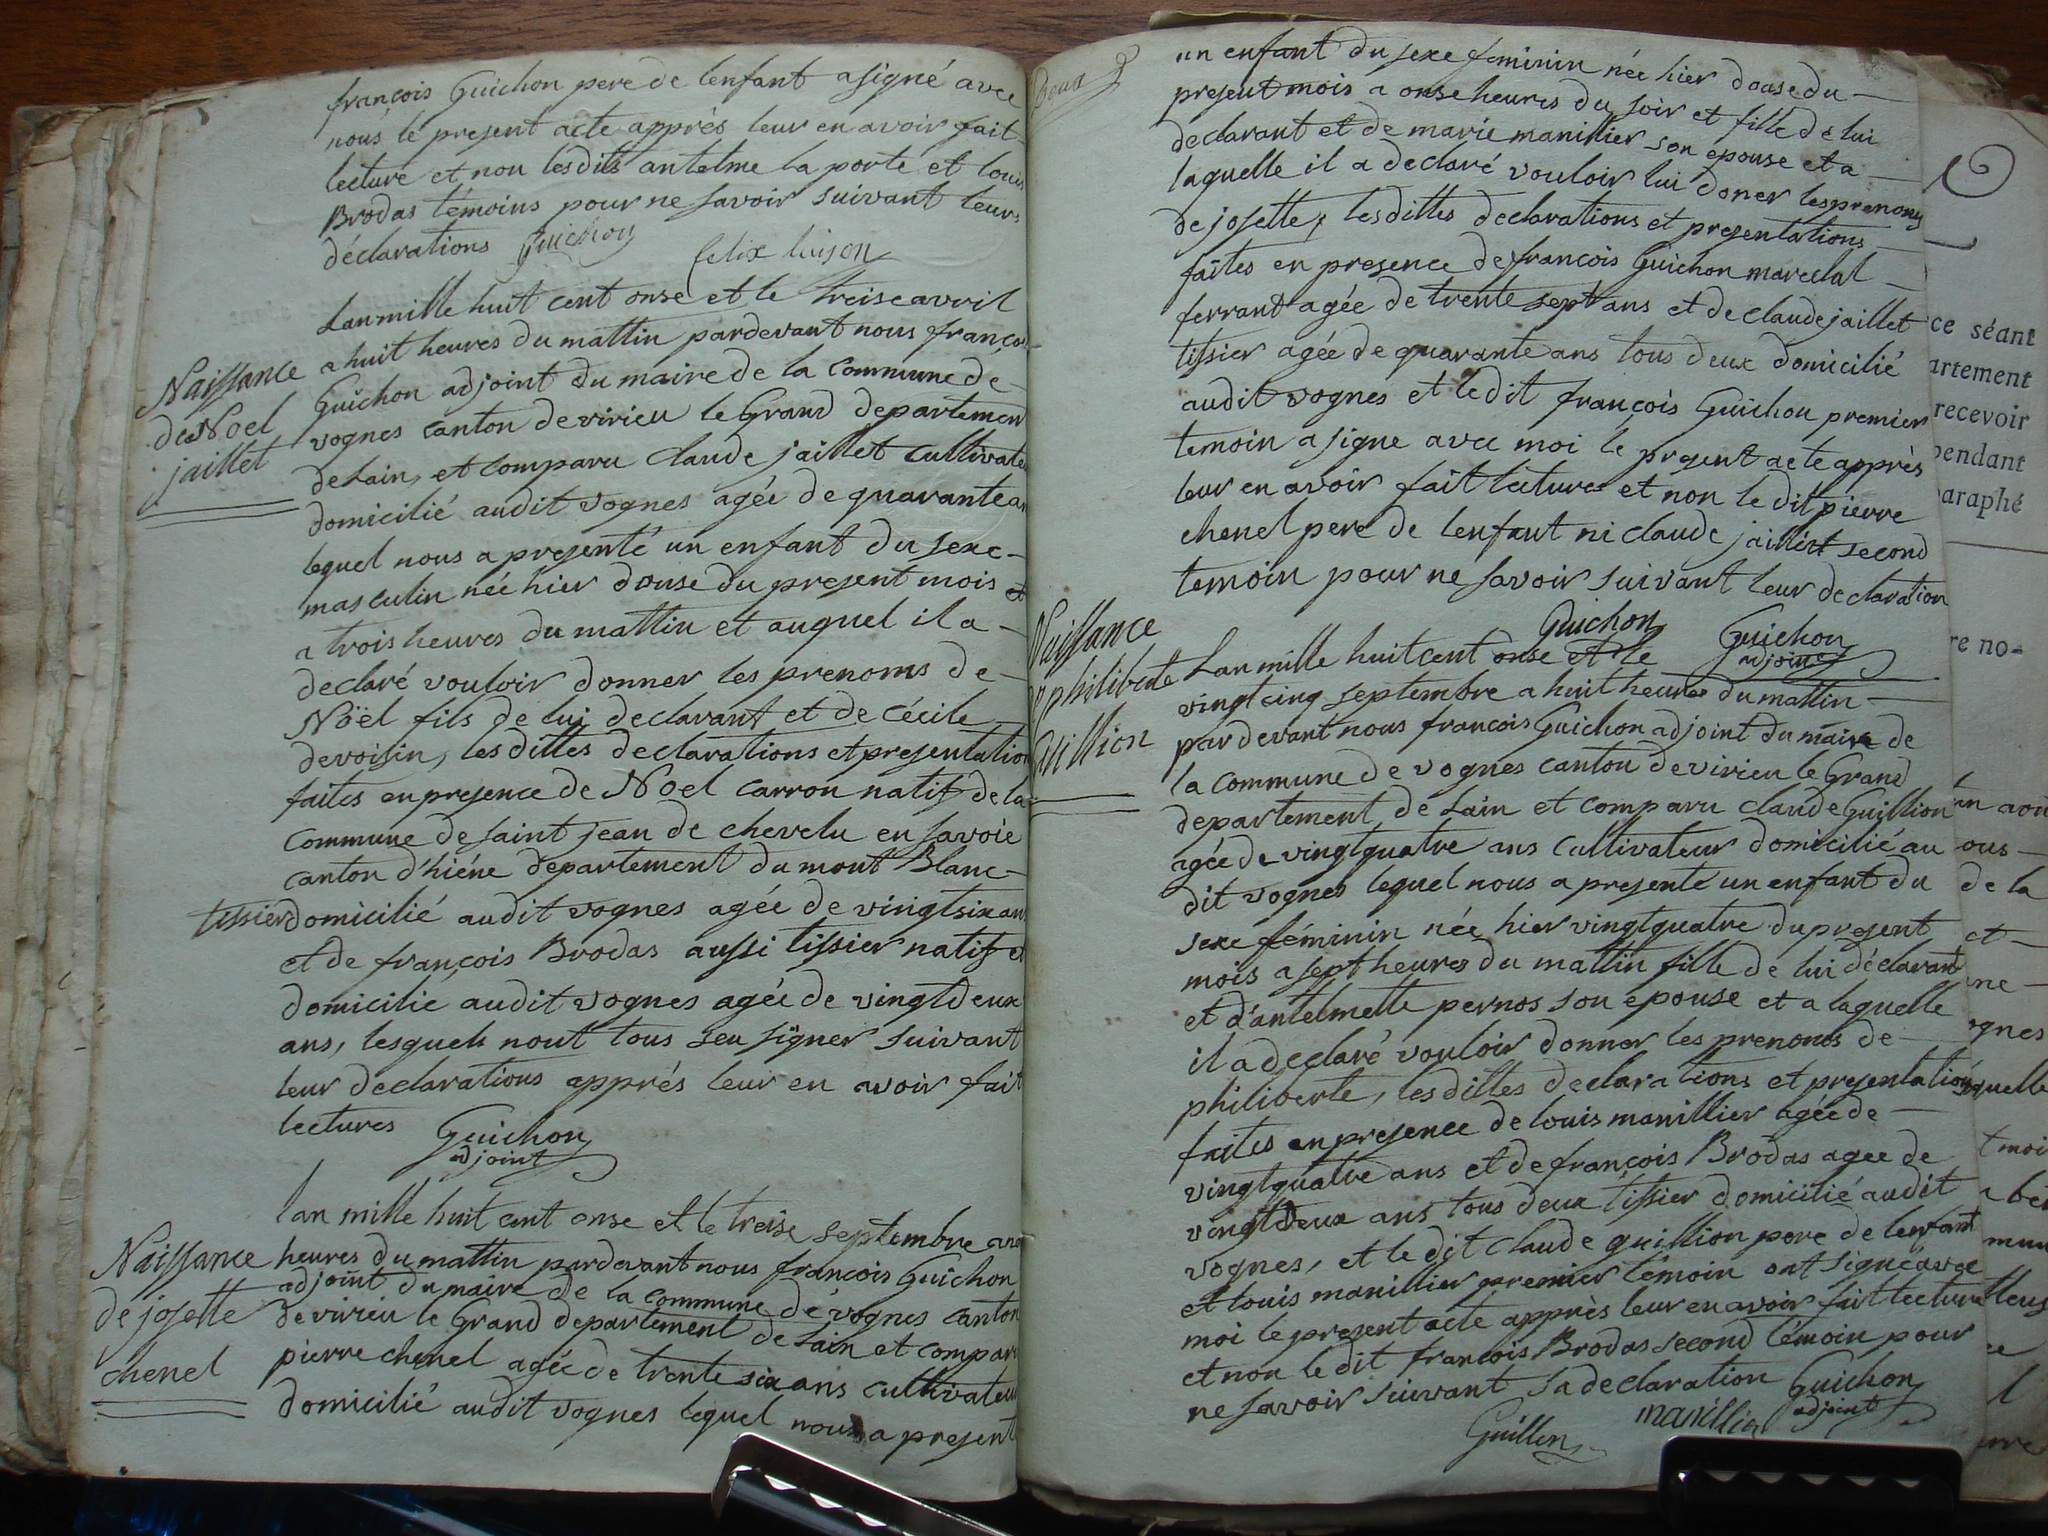 françois Guichon pere de lenfant a signé avec
nous le present acte apprès leur en avoir fait
lecture et non lesdits antelme la porte et louis
Brodas témoins pour ne savoir suivant leurs
déclarations Guichon
felix luison
Lan mille huit cent onse et le treise avril
a huit heures du mattin pardevant nous franço
Naissance
de Noel
jaillet
Guichon adjoint du maire de la commune de
vognes canton de virieu le Grand departemen
de Lain, et comparu Claude jaillet cultivate
domicilié audit vognes agée de quarante an
lequel nous a presenté un enfant du sexe
masculin née hier douse du present mois et
a trois heures du mattin et auquel il a
declaré vouloir donner les prenoms de
Noël fils de lui declarant et de Cécile
devoisin, les dittes declarations et presentation
faites en presence de Noel Carron natif de la
Commune de saint jean de chevelu en savoie
canton d'hiéne departement du mont Blanc
tissier domicilié audit vognes agée de vingt six ans
et de françois Brodas aussi tissier natif et
domicilié audit vognes agée de vingt deux
ans, lesquels nont tous seu signer suivant
leur declarations apprés leur en avoir fait
lectures Guichon
adjoint
lan mille huit cent onse et le treise septembre
Naissance
de josette
chenel
heures du mattin pardevant nous françois Guichon
adjoint du maire de la commune de vognes canton
de virieu le Grand departement de Lain et compar
pierre chenel agée de trente six ans cultivateur
domicilié audit vognes lequel nous a present
un enfant du sexe feminin née hier douse du
present mois a onse heures du soir et fille de lui
declarant et de marie manillier son epouse et a
laquelle il a declaré vouloir lui doner les prenoms
de josette, les dittes declarations et presentations
faites en presence de françois Guichon marechal
ferrant agée de trente sept ans et de claude jaillet
tissier agée de quarante ans tous deux domicilié
audit vognes et le dit françois Guichon premier
temoin a signe avec moi le present acte apprès
leur en avoir fait lecture et non le dit pierre
chenel pere de lenfant ni claude jaillet second
temoin pour ne savoir suivant leur declaration
Guichon Guichon
adjoint
Naissance
philiberte
Guillion
Lan mille huit cent onse et le
vingt cinq septembre a huit heures du mattin
par devant nous françois Guichon adjoint du maire de
la commune de vognes canton de virieu le Grand
departement de Lain et comparu claude Guillion
agée de vingt quatre ans cultivateur domicilié au
dit vognes lequel nous a presente un enfant du
sexe féminin née hier vingt quatre du present
mois a sept heures du mattin fille de lui déclarant
et d'antelmette pernos son epouse et a laquelle
il a declaré vouloir donner les prenoms de
philiberte, les dittes declarations et presentation
faites en presence de louis manillier agée de
vingt quatre ans et de françois Brodas agee de
vingt deux ans tous deux tissier domicilié audit
vognes, et le dit claude guillion pere de lenfant
et louis manillier premier témoin ont signé avec
moi le present acte apprès leur en avoir fait lecture
et non le dit françois Brodas second témoin pour
ne savoir suivant sa declaration Guichon
adjoint
Guillon manillier
ce séant
artement
recevoir
pendant
paraphé
re no-
ous
de la
et
ognes